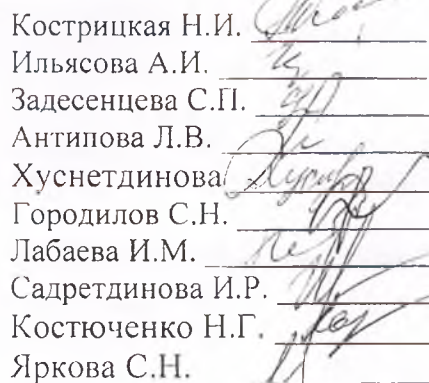 Кострицкая Н.И.
Ильясова А.И.
Задесенцева С.П.
Антипова Л.В.
Хуснетдинова
Городилов С.Н.
Лабаева И.М.
Садретдинова И.Р.
Костюченко Н.Г.
Яркова С.Н.